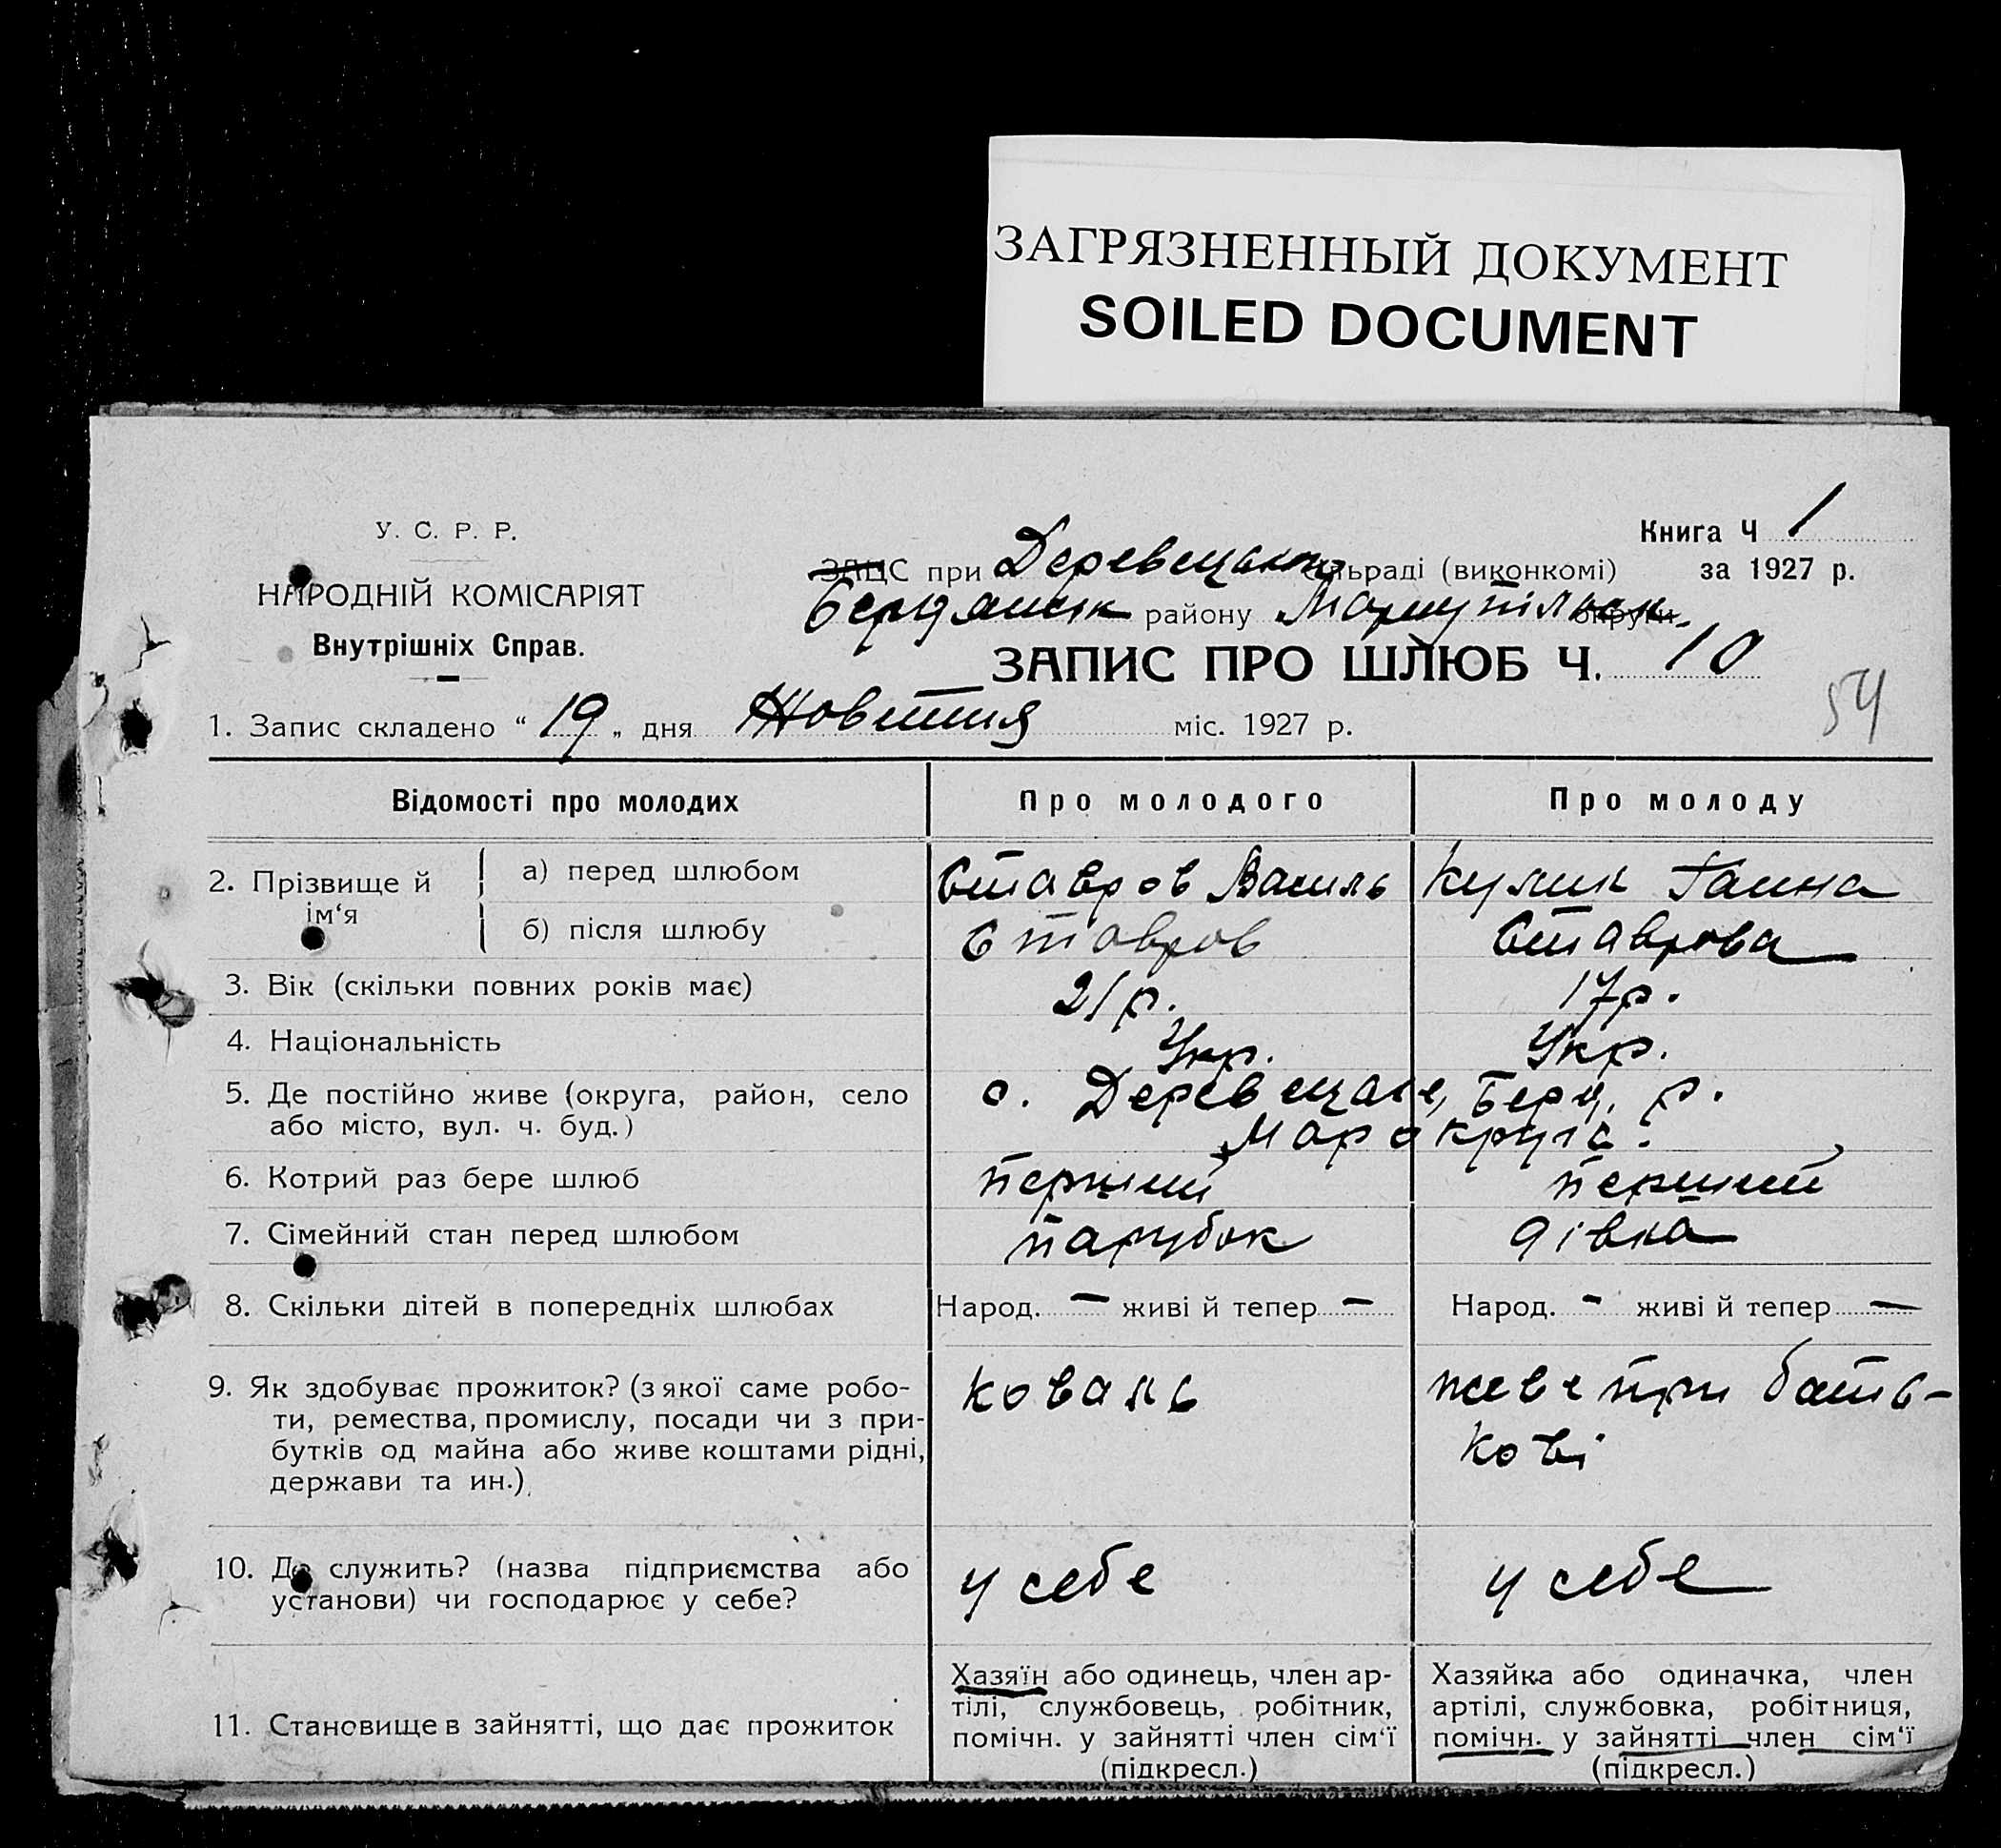 ЗАГРЯЗНЕННЫЙ ДОКУМЕНТ
SOILED DOCUMENT
У. С. Р. Р.
НАРОДНІЙ КОМІСАРІЯТ
Внутрішніх Справ.
Книга Ч 1
за 1927 р.
ЗАЦС при сільраді (виконкомі)
Бердянськ району Маріупільськ округи
ЗАПИС ПРО ШЛЮБ Ч. 10
54
1. Запис складено “ 19 „ дня Жовтня міс. 1927 р.
Відомості про молодих Про молодого Про молоду
2. Прізвище й ім‘я
а) перед шлюбом Ставров Василь Кулик Ганна
б) після шлюбу Ставров Ставрова
3. Вік (скільки повних років має) 21 р. 17 р.
4. Національність Укр. Укр.
5. Де постійно живе (округа, район, село або місто, вул. ч. буд.)
с. Берд. р.
Мар округа.
6. Котрий раз бере шлюб перший перший
7. Сімейний стан перед шлюбом парубок дівка
8. Скільки дітей в попередніх шлюбах Народ. – живі й тепер – Народ. – живі й тепер –
9. Як здобуває прожиток? (з якої саме робо-
ти, ремества, промислу, посади чи з при-
бутків од майна або живе коштами рідні,
держави та ин.)
коваль
живе при бать-
кові
10. Де служить? (назва підприємства або
установи) чи господарює у себе?
у себе
у себе
11. Становище в зайнятті, що дає прожиток
Хазяїн або одинець, член ар-
тілі, службовець, робітник,
помічн. у зайнятті член сім‘ї
(підкресл.)
Хазяйка або одиначка, член
артілі, службовка, робітниця,
помічн. у зайнятті член сім‘ї
(підкресл.)